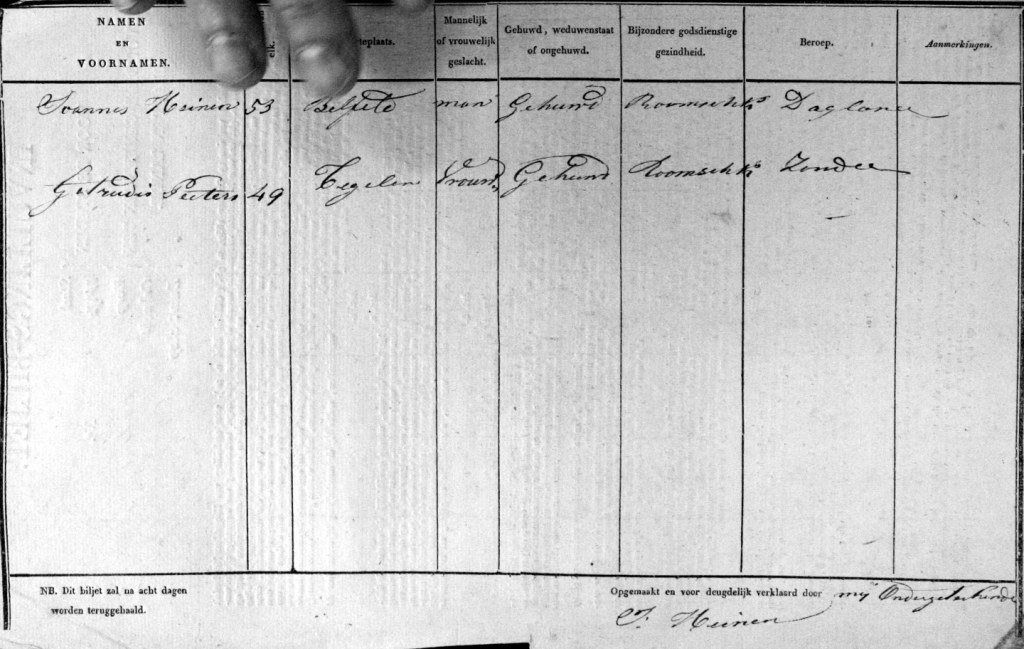 NAMEN
EN
VOORNAMEN.
elk.
teplaats.
Mannelijk
of vrouwelijk
geslacht.
Gehuwd, weduwenstaat
of ongehuwd.
Bijzondere godsdienstige
gezindheid.
Beroep.
Aanmerkingen.
Joannes Heinen 53 Belfete man Gehuwd Roomsch
Getrudis Peeters 49 Tegelen Vrouw Gehuwd Roomsch Zonder
NB. Dit biljet zal na acht dagen
worden teruggehaald.
Opgemaakt en voor deugdelijk verklaard door mij
J. Heinen